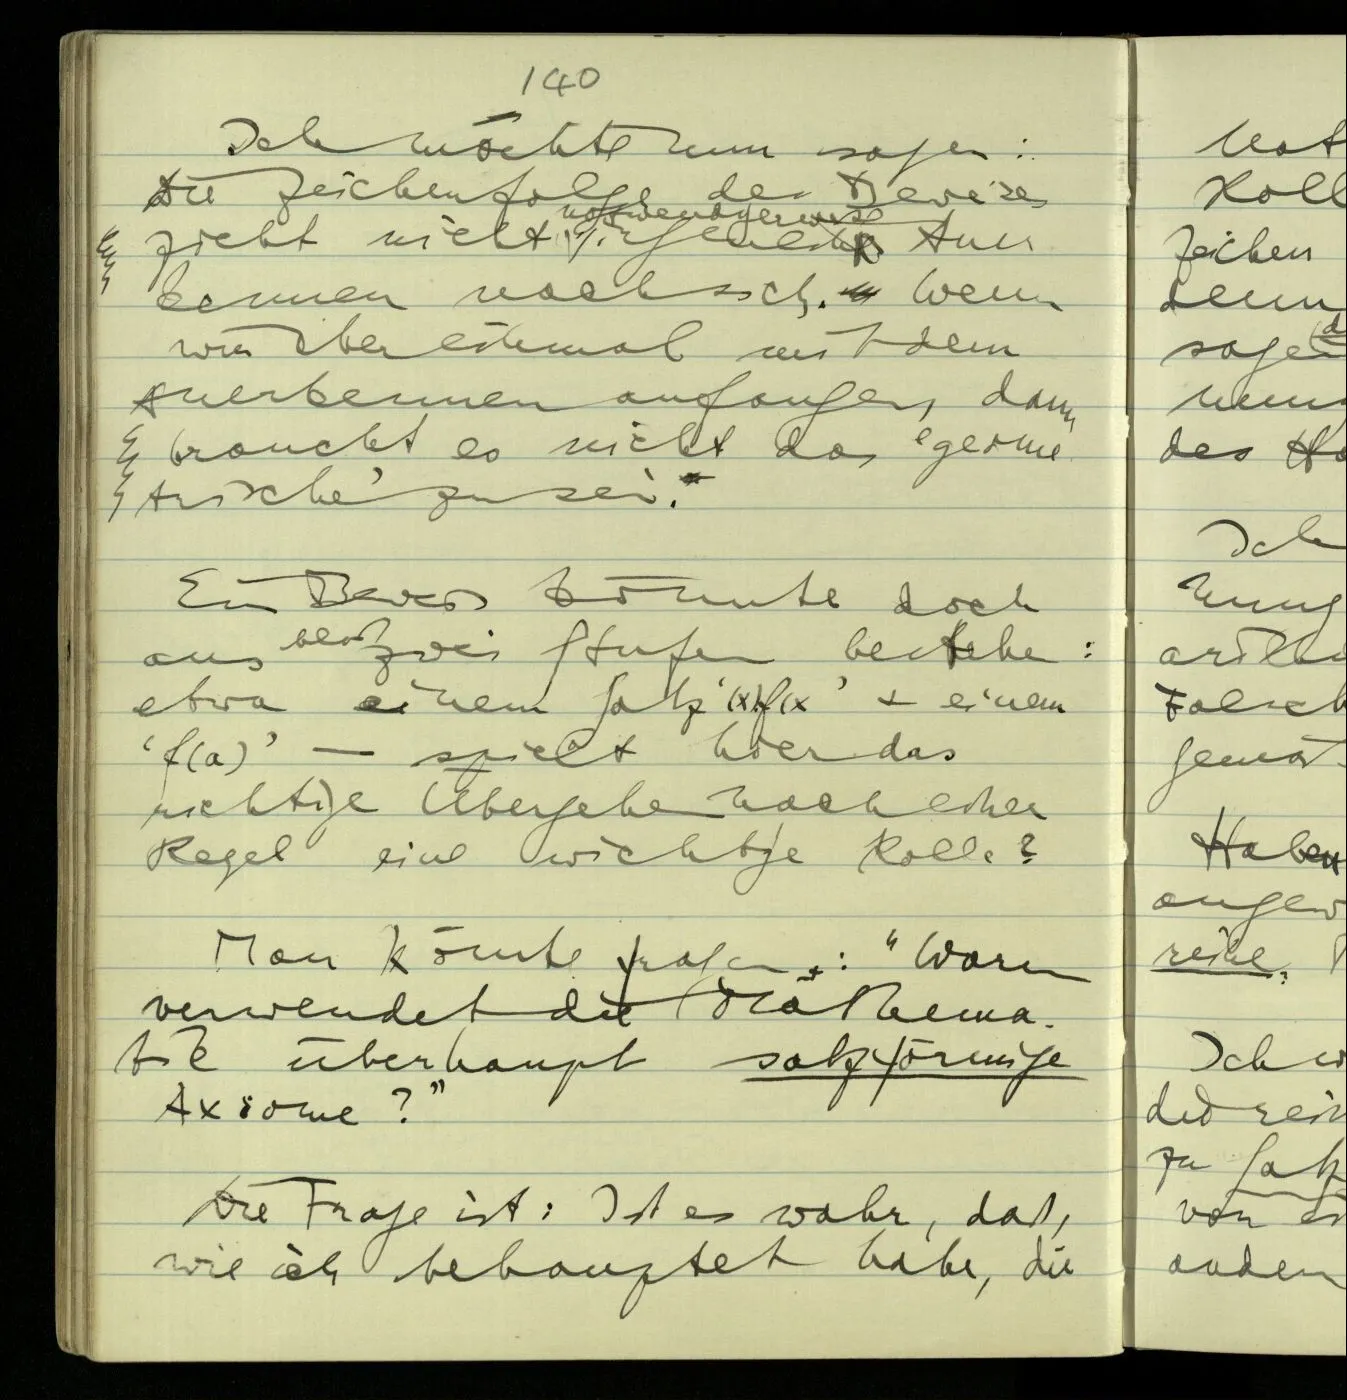 140
Ich möchte nun sagen:
Die Zeichenfolge des Beweises
notwendigerweise
zieht nicht irgend ein Aner
kennen nach sich. Wenn
wir aber einmal mit dem
Anerkennen anfangen, dann
braucht es nicht das ‘geome
trische’ zu sein.
Ein Beweis könnte doch
bloß
aus zwei Stufen bestehen:
etwa einem Satz ‘(x)fx’ + einem
‘f(a)’ — spielt hier das
richtige Übergehen nach einer
Regel eine wichtige Rolle?
Man könnte fragen: “Warum
verwendet die Mathema-
tik überhaupt satzförmige
Axiome?”
Die Frage ist: Ist es wahr, daß,
wie ich behauptet habe, die
Zeichen
denn
sage
des
Ich
gemä
Haben
angew
reihe,
Ich w
die rein
zu Satz
von ei
andern